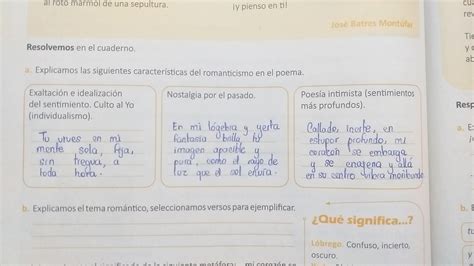 al roto mármol de una sepultura.
¡y pienso en ti!
José Batres Montúfar
Resolvemos en el cuaderno.
a. Explicamos las siguientes características del romanticismo en el poema.
Exaltación e idealización
del sentimiento. Culto al Yo
(individualismo).
Tu vives en mi
mente sola, fija,
sin tregua, a
toda hora.
Nostalgia por el pasado.
En mi lóbrega y yerta
fantasía brilla tu
imagen apacible y
pura, como el rayo de
luz que el sol envía.
Poesía intimista (sentimientos
más profundos).
Callado, inerte, en
estupor profundo, mi
corazón se embarga
y se enagena y allá
en su centro vibra moribundo
b. Explicamos el tema romántico, seleccionamos versos para ejemplificar.
¿Qué significa...?
Lóbrego. Confuso, incierto,
oscuro.